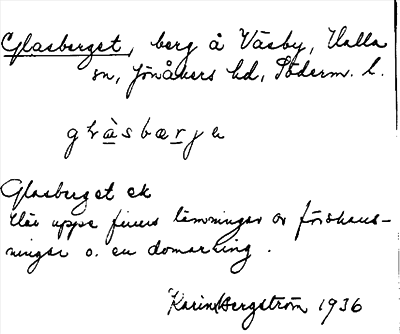 Glasberget, berg å Väsby, Halla
sn, Jönåkers hd, Söderm. l.
Glasberget ek
Här uppe finns lämningar av förskans-
ningar o. en domarring.
Karin Bergström 1936